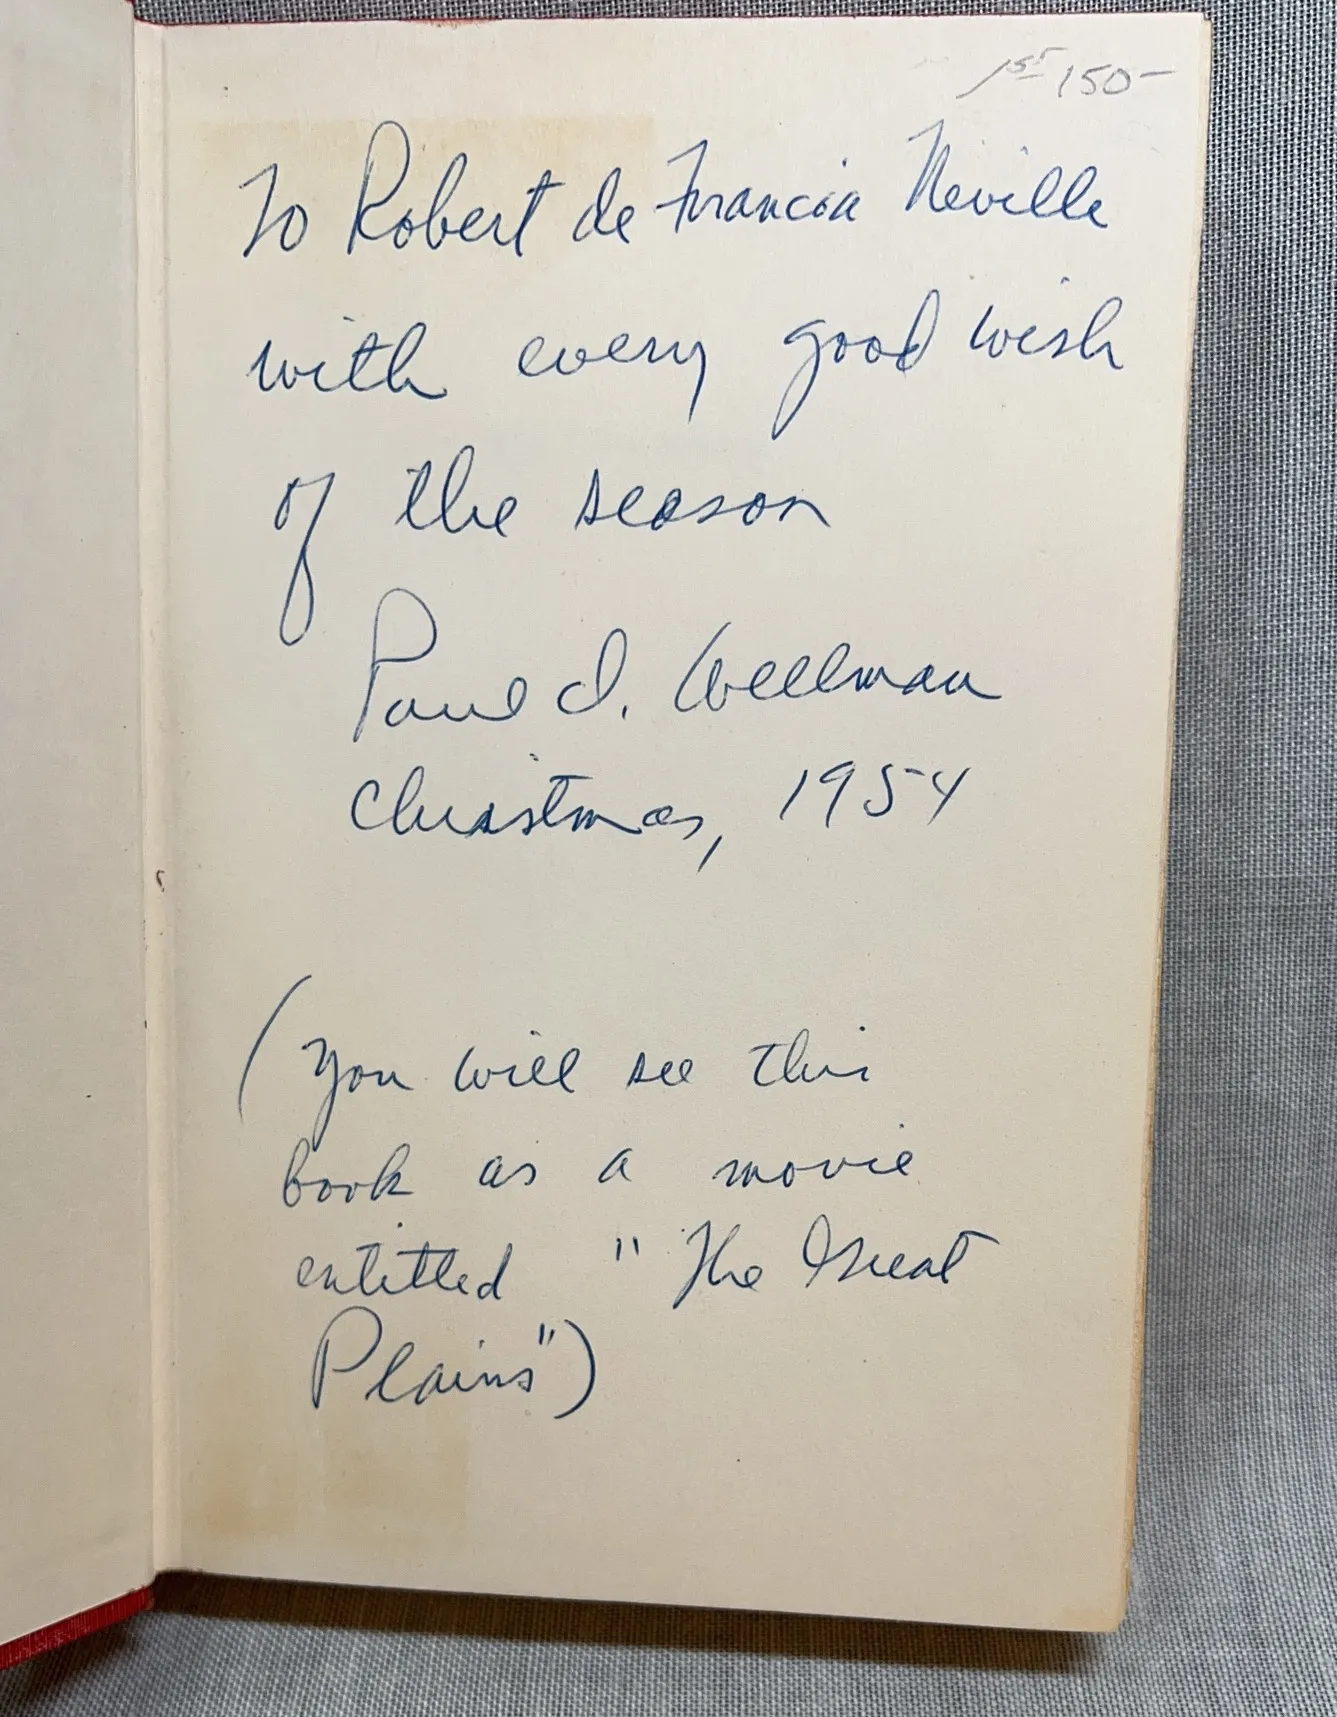 1st 150-
To Robert de Francia Neville
with every good wish
of the season
Paul I. Wellman
Christmas, 1954
(You will see this
book as a movie
entitled "The Great
Plains")